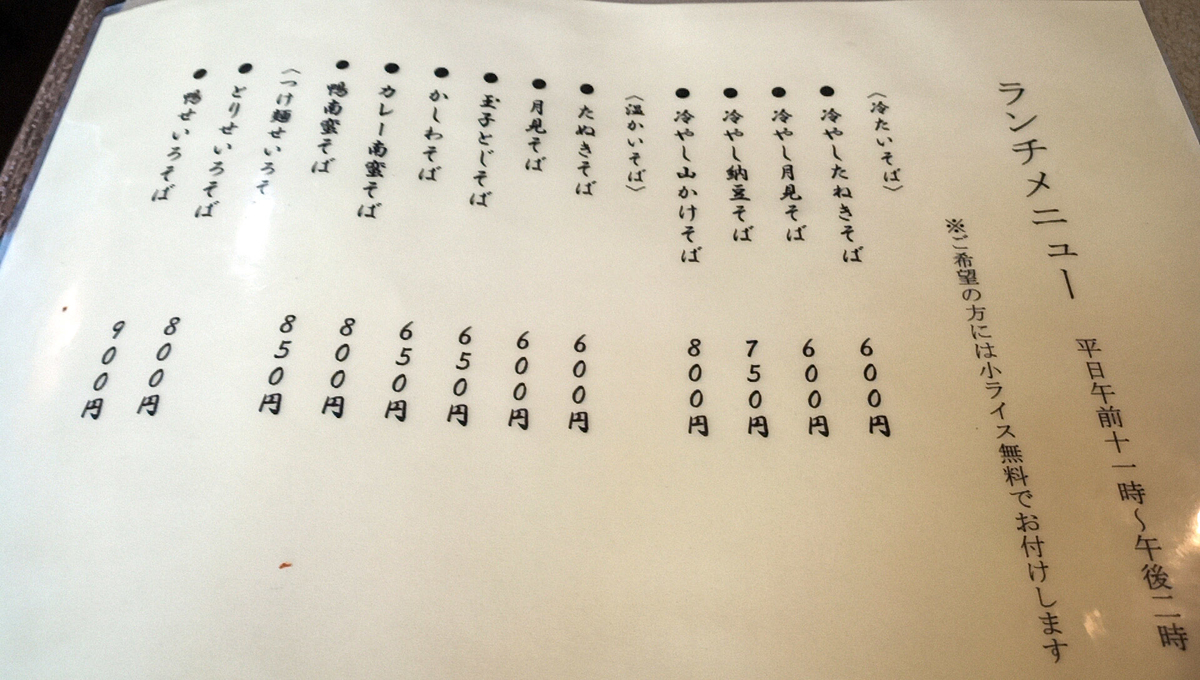 ランチメニュー 平日午前十一時～午後二時
※ご希望の方には小ライス無料でお付けします
〈冷たいそば〉
●冷やしたぬきそば 600円
●冷やし月見そば 600円
●冷やし納豆そば 750円
●冷やし山かけそば 800円
〈温かいそば〉
●たぬきそば 600円
●月見そば 600円
●玉子とじそば 650円
●かしわそば 650円
●カレー南蛮そば 800円
●鴨南蛮そば 850円
〈つけ麺せいろそ
●とりせいろそば 800円
●鴨せいろそば 900円